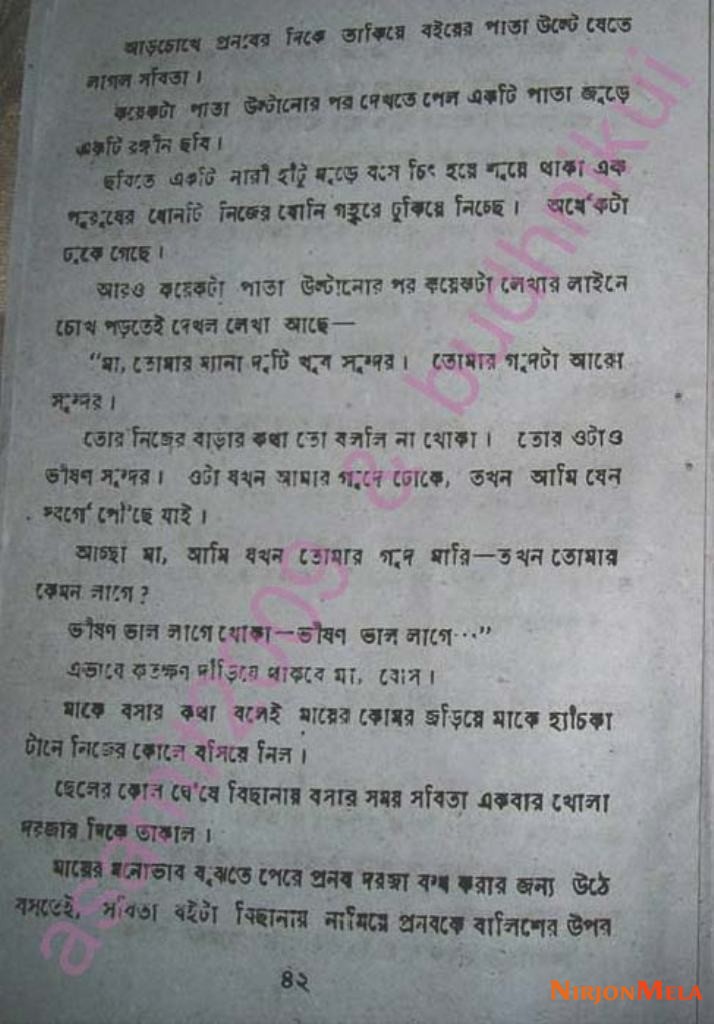 আড়চোখে প্রনবের দিকে তাকিয়ে বইয়ের পাতা উল্টে যেতে
লাগল সবিতা।
কয়েকটা পাতা উল্টানোর পর দেখতে পেল একটি পাতা জুড়ে
একটি রঙ্গীন ছবি।
ছবিতে একটি নারী হাঁটু মুড়ে বসে চিৎ হয়ে শুয়ে থাকা এক
পুরুষের ধোনটি নিজের যোনি গহ্বরে ঢুকিয়ে নিচ্ছে। অর্ধেকটা
ঢুকে গেছে।
আরও কয়েকটা পাতা উল্টানোর পর কয়েকটা লেখার লাইনে
চোখ পড়তেই দেখল লেখা আছে—
"মা, তোমার ম্যানা দুটি খুব সুন্দর। তোমার গুদটা আরো
সুন্দর।
তোর নিজের বাড়ার কথা তো বললি না খোকা। তোর ওটাও
ভীষণ সুন্দর। ওটা যখন আমার গুদে ঢোকে, তখন আমি যেন
স্বর্গে পৌঁছে যাই।
আচ্ছা মা, আমি যখন তোমার গুদ মারি—তখন তোমার
কেমন লাগে?
ভীষণ ভাল লাগে খোকা—ভীষণ ভাল লাগে…"
এভাবে কতক্ষণ দাঁড়িয়ে থাকবে মা, বোস।
মাকে বসার কথা বলেই মায়ের কোমর জড়িয়ে মাকে হ্যাঁচকা
টানে নিজের কোলে বসিয়ে নিল।
ছেলের কোল ঘেঁষে বিছানায় বসার সময় সবিতা একবার খোলা
দরজার দিকে তাকাল।
মায়ের মনোভাব বুঝতে পেরে প্রনব দরজা বন্ধ করার জন্য উঠে
বসতেই, সবিতা বইটা বিছানায় নামিয়ে প্রনবকে বালিশের উপর
৪২
asamit2009 & budhnikui
NIRJONMELA